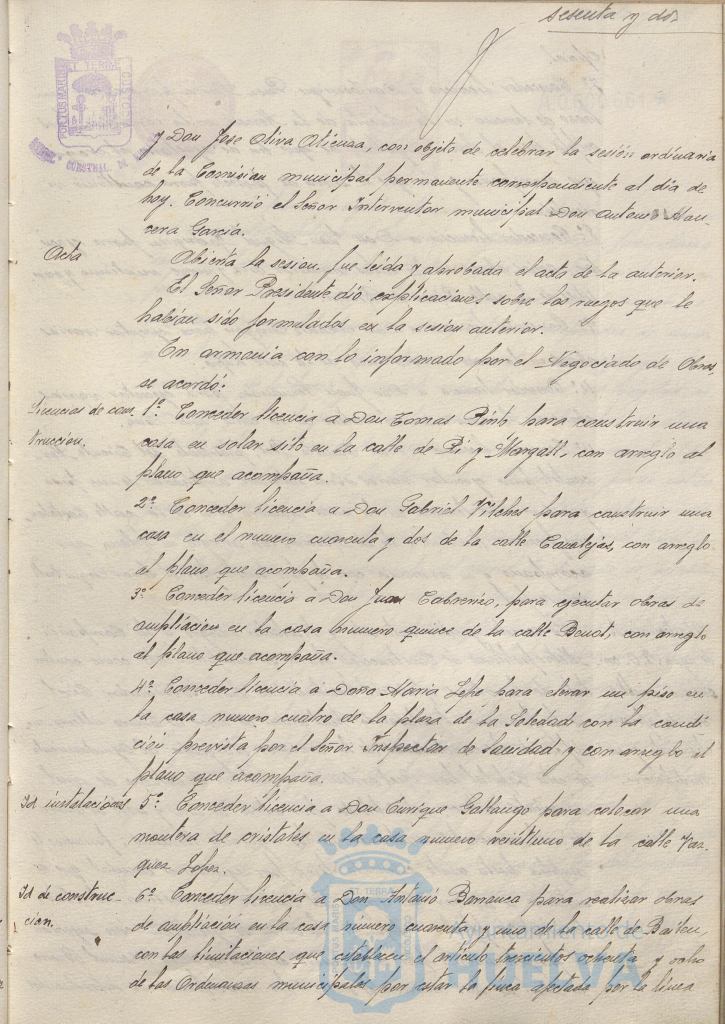 sesenta y dos
PORTUS MARIS ET TERRAE CUSTODIA
y Don Jose Oliva Atienza, con objeto de celebrar la sesión ordinaria
de la Comisian municipal permanente correspondiente al dia de
hoy. Concurrió el Señor Interventor municipal Don Antonio Man-
cera García.
Acta
Abierta la sesion, fue leida y aprobada el acta de la anterior.
El Señor Presidente dió explicaciones sobre los ruegos que le
habian sido formulados en la sesión anterior.
En armonia con lo informado por el Negociado de Obras,
se acordó:
Licencias de cons-
truccion.
1º. Conceder licencia a Don Tomas Pinto para construir una
casa en solar sito en la calle de Pi y Margall, con arreglo al
plano que acompaña.
2º. Conceder licencia a Don Gabriel Vilches para construir una
casa en el numero cuarenta y dos de la calle Canalejas, con arreglo
al plano que acompaña.
3º. Conceder licencia á Don Juan Cabrerizo, para ejecutar obras de
ampliacion en la casa numero quince de la calle Benot, con arreglo
al plano que acompaña.
4º. Conceder licencia á Doña Maria Lepe para elevar un piso en
la casa numero cuatro de la plaza de la Soledad con la condi-
ción prevista por el Señor Inspector de Sanidad y con arreglo al
plano que acompaña.
Id instalaciones
5º. Conceder licencia a Don Enrique Gallango para colocar una
montera de cristales en la casa numero veintiuno de la calle Vaz-
quez Lopez.
Id de construc-
cion.
6º. Conceder licencia a Don Antonio Barranca para realizar obras
de ampliación en la casa número cuarenta y uno de la calle de Bailen,
con las limitaciones que establecen el artículo trescientos ochenta y ocho
de las Ordenanzas municipales por estar la finca afectada por la línea
HUELVA